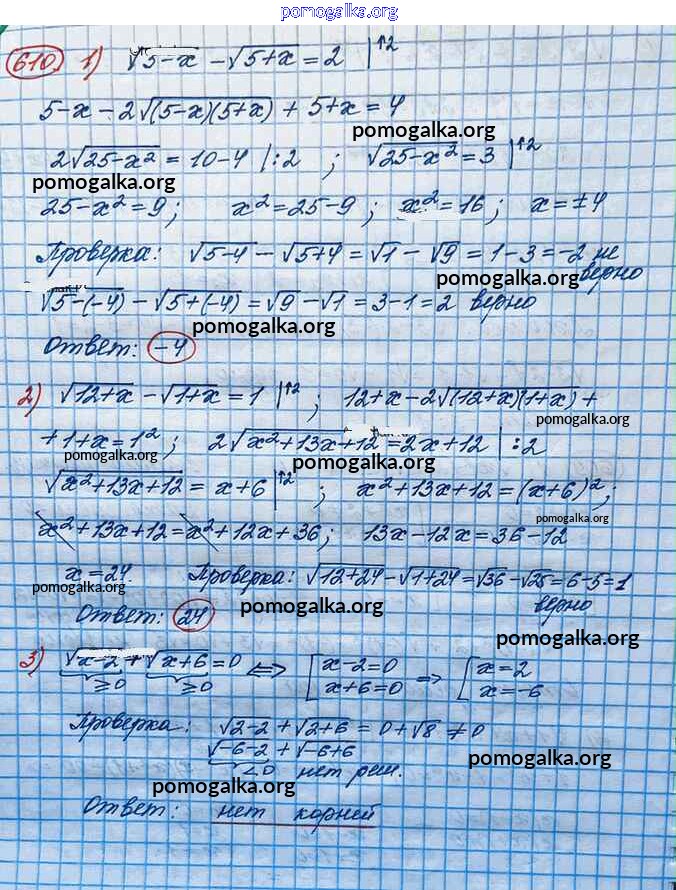 pomogalka.org
610. 1) √5-x - √5+x = 2 |↑2
5-x - 2√(5-x)(5+x) + 5+x = 4
pomogalka.org
2√25-x² = 10-4 |:2 ; √25-x² = 3 |↑2
pomogalka.org
25-x² = 9; x² = 25-9 ; x² = 16; x = ±4
Проверка: √5-4 - √5+4 = √1 - √9 = 1-3 = -2 не верно
pomogalka.org
√5-(-4) - √5+(-4) = √9 - √1 = 3-1 = 2 верно
pomogalka.org
Ответ: -4
2) √12+x - √1+x = 1 |↑2 ; 12+x-2√(12+x)(1+x) +
pomogalka.org
+1+x = 1² ; 2√x²+13x+12 = 2x+12 |:2
pomogalka.org
pomogalka.org
√x²+13x+12 = x+6 |↑2 ; x²+13x+12 = (x+6)²;
pomogalka.org
x²+13x+12 = x²+12x+36; 13x-12x = 36-12
x = 24. Проверка: √12+24 - √1+24 = √36 - √25 = 6-5 = 1 верно
pomogalka.org
pomogalka.org
Ответ: 24
pomogalka.org
3) √x-2 + √x+6 = 0 ⟺ [ x-2=0 ⇒ [ x=2
≥0 ≥0 x+6=0 x=-6
Проверка: √2-2 + √2+6 = 0+√8 ≠ 0
√-6-2 + √-6+6
pomogalka.org
<0 нет реш.
pomogalka.org
Ответ: нет корней